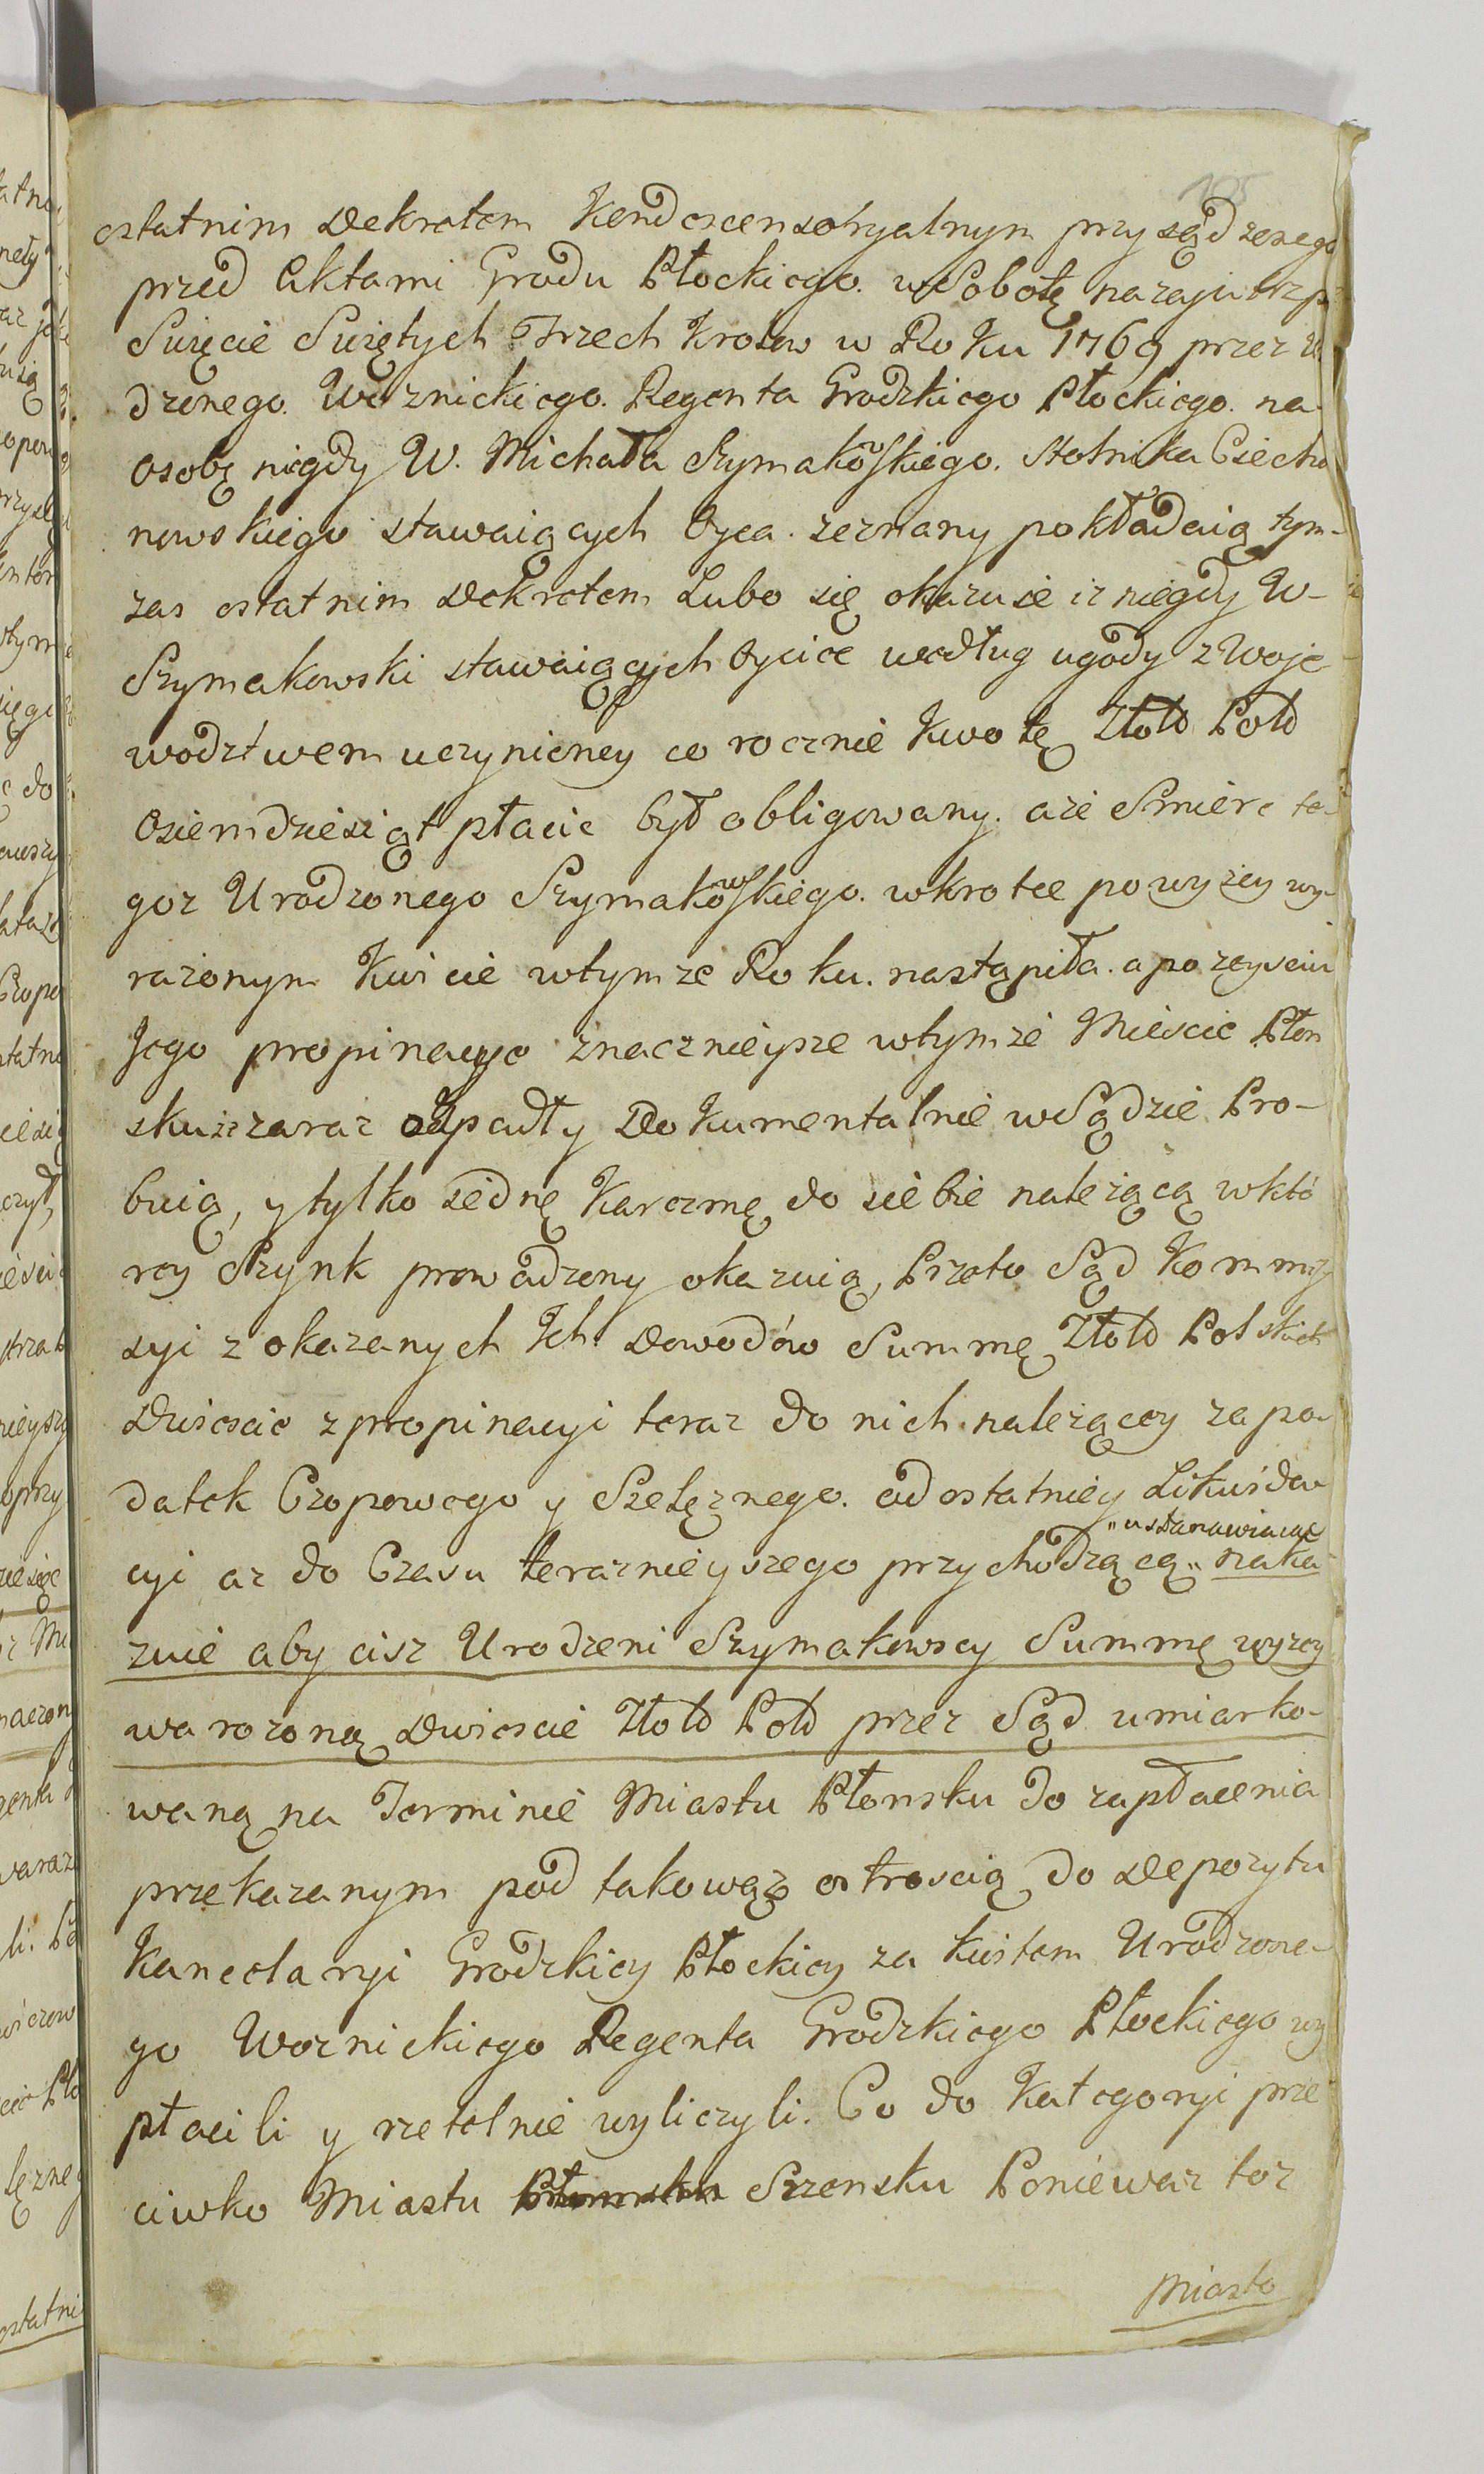 195
ostatnim Dekretem Kondescensoryalnym przysądzonego
przed Aktami Grodu Płockiego. w Sobotę nazajutrz p
Swięcie Swiętych Trzech Krolow w Roku 1769 przez U
dzonego. Woznickiego. Regenta Grodzkiego Płockiego. na
osobę niegdy W. Michała Szymakowskiego. Stolnika Ciecha
nowskiego stawaiących Oyca. zeznany pokładaią tym-
zas ostatnim Dekretem Lubo się okazuie iz niegdy W-
Szymakowski stawaiących Oyciec według ugody z Woje
wodztwem uczynioney co rocznie Kwotę Złotd Pold
Osiemdziesiąt płacic był obligowany. aże Smierc te-
goz Urodzonego Szymakowskiego. wkrotce powyzey wy-
rażonym Kwicie wtymze Roku. nastąpiła. a po zeysciu
Jego propinacye znacznieysze wtymże Miescie Płon
sku iż zaraz odpadły Dokumentalnie w Sądzie Pro-
buią, y tylko iednę Karczmę do siebie należącą w któ
rey Szynk prowadzony okazuią, Przeto Sąd Kommis
syi z okazanych Ich Dowodów Summę Złotd Polskich
Dwiescie z propinacyi teraz do nich należącey za po-
datek Czopowego y Szelęznego. od ostatniey Likwida-
cyi az do Czasu teraznieyszego przychodzącą „ naka-
„ustanawiaiąc
zuie aby cisz Urodzeni Szymakowscy Summę wyzey
warozoną Dwiescie Złotd Pold przez Sąd umiarko-
waną na Terminie Miastu Płonsku do zapłacenia
przekazanym pod takowąz ostroscią do Depozytu
Kancelaryi Grodzkiey Płockiey za Kwitem Urodzone-
go Woznickiego Regenta Grodzkiego Płockiego wy
płacili y rzetelnie wyliczyli. Co do Kategoryi prze
ciwko Miastu Płonsku Szrensku Poniewaz toz
Miasto